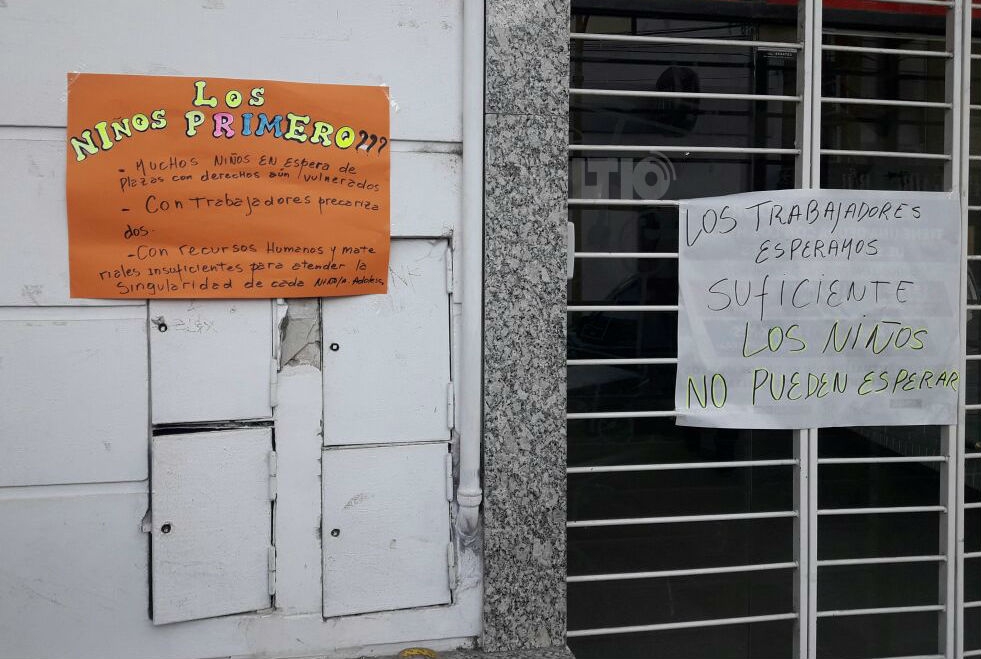 LOS
NIÑOS PRIMERO???
- MUCHOS NIÑOS EN ESPERA de
Plazas con derechos aún vulnerados
- Con Trabajadores precariza
dos.
- Con recursos Humanos y mate
riales insuficientes para atender la
Singularidad de cada NIÑO/A. Adolesc.
LOS TRABAJADORES
ESPERAMOS
SUFICIENTE
LOS NIÑOS
NO PUEDEN ESPERAR